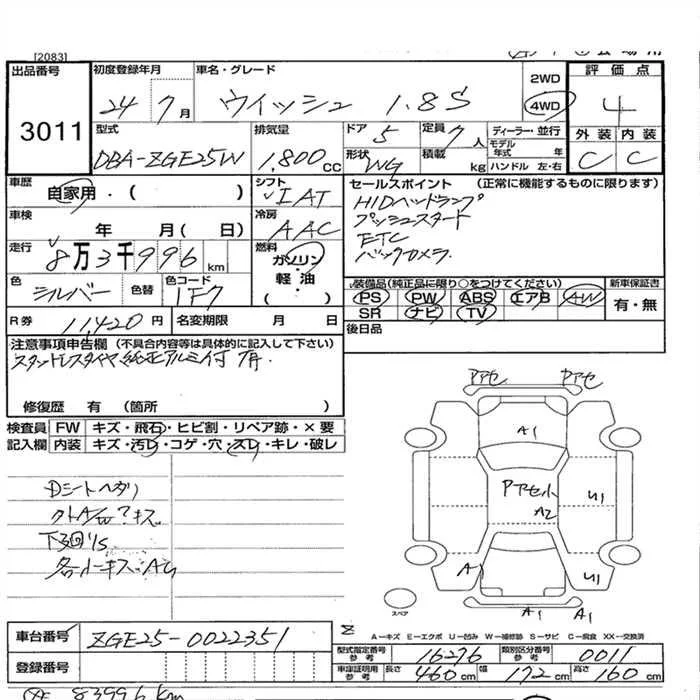 [2083]
出品番号 3011
初度登録年月 24 7月
車名・グレード ウイッシュ 1.8S
2WD
4WD
評価点 4
外装 内装
C C
型式 DBA-ZGE25W
排気量 1,800 CC
ドア 5
形状 WG
定員 7人
積載 kg
ディーラー・並行
モデル年式 年
ハンドル 左・右
車歴 自家用・( )
シフト IAT
冷房 AAC
セールスポイント (正常に機能するものに限ります)
HIDヘッドランプ
プッシュスタート
ETC
バックカメラ
車検 年 月( 日)
走行 8万3千996km
燃料 ガソリン・軽油・( )
色 シルバー 色替 色コード 1F7
装備品(純正品に限り○をつけてください)
PS PW ABS エアB AW
SR ナビ TV
新車保証書 有・無
R券 11,420円 名変期限 月 日
後日品
注意事項申告欄 (不具合内容等は具体的に記入して下さい)
スタッドレスタイヤ 純正アルミ付 有.
修復歴 有 (箇所 )
検査員記入欄 FW キズ・飛石・ヒビ割・リペア跡・×要
内装 キズ・汚レ・コゲ・穴・スレ・キレ・破レ
Dシートヘタリ
下回リS
各小キズ.AU
Pアセ Pアセ
A1
Pアセ小
A2
U1
A1
U1
A1 A1
スペア
A-キズ E-エクボ U-凹み W-補修跡 S-サビ C-腐食 XX-交換済
車台番号 ZGE25-0022351
登録番号
型式指定番号参考 16276 類別区分番号参考 0011
車庫証明用参考 長さ 460cm 幅 172cm 高さ 160cm
83996km